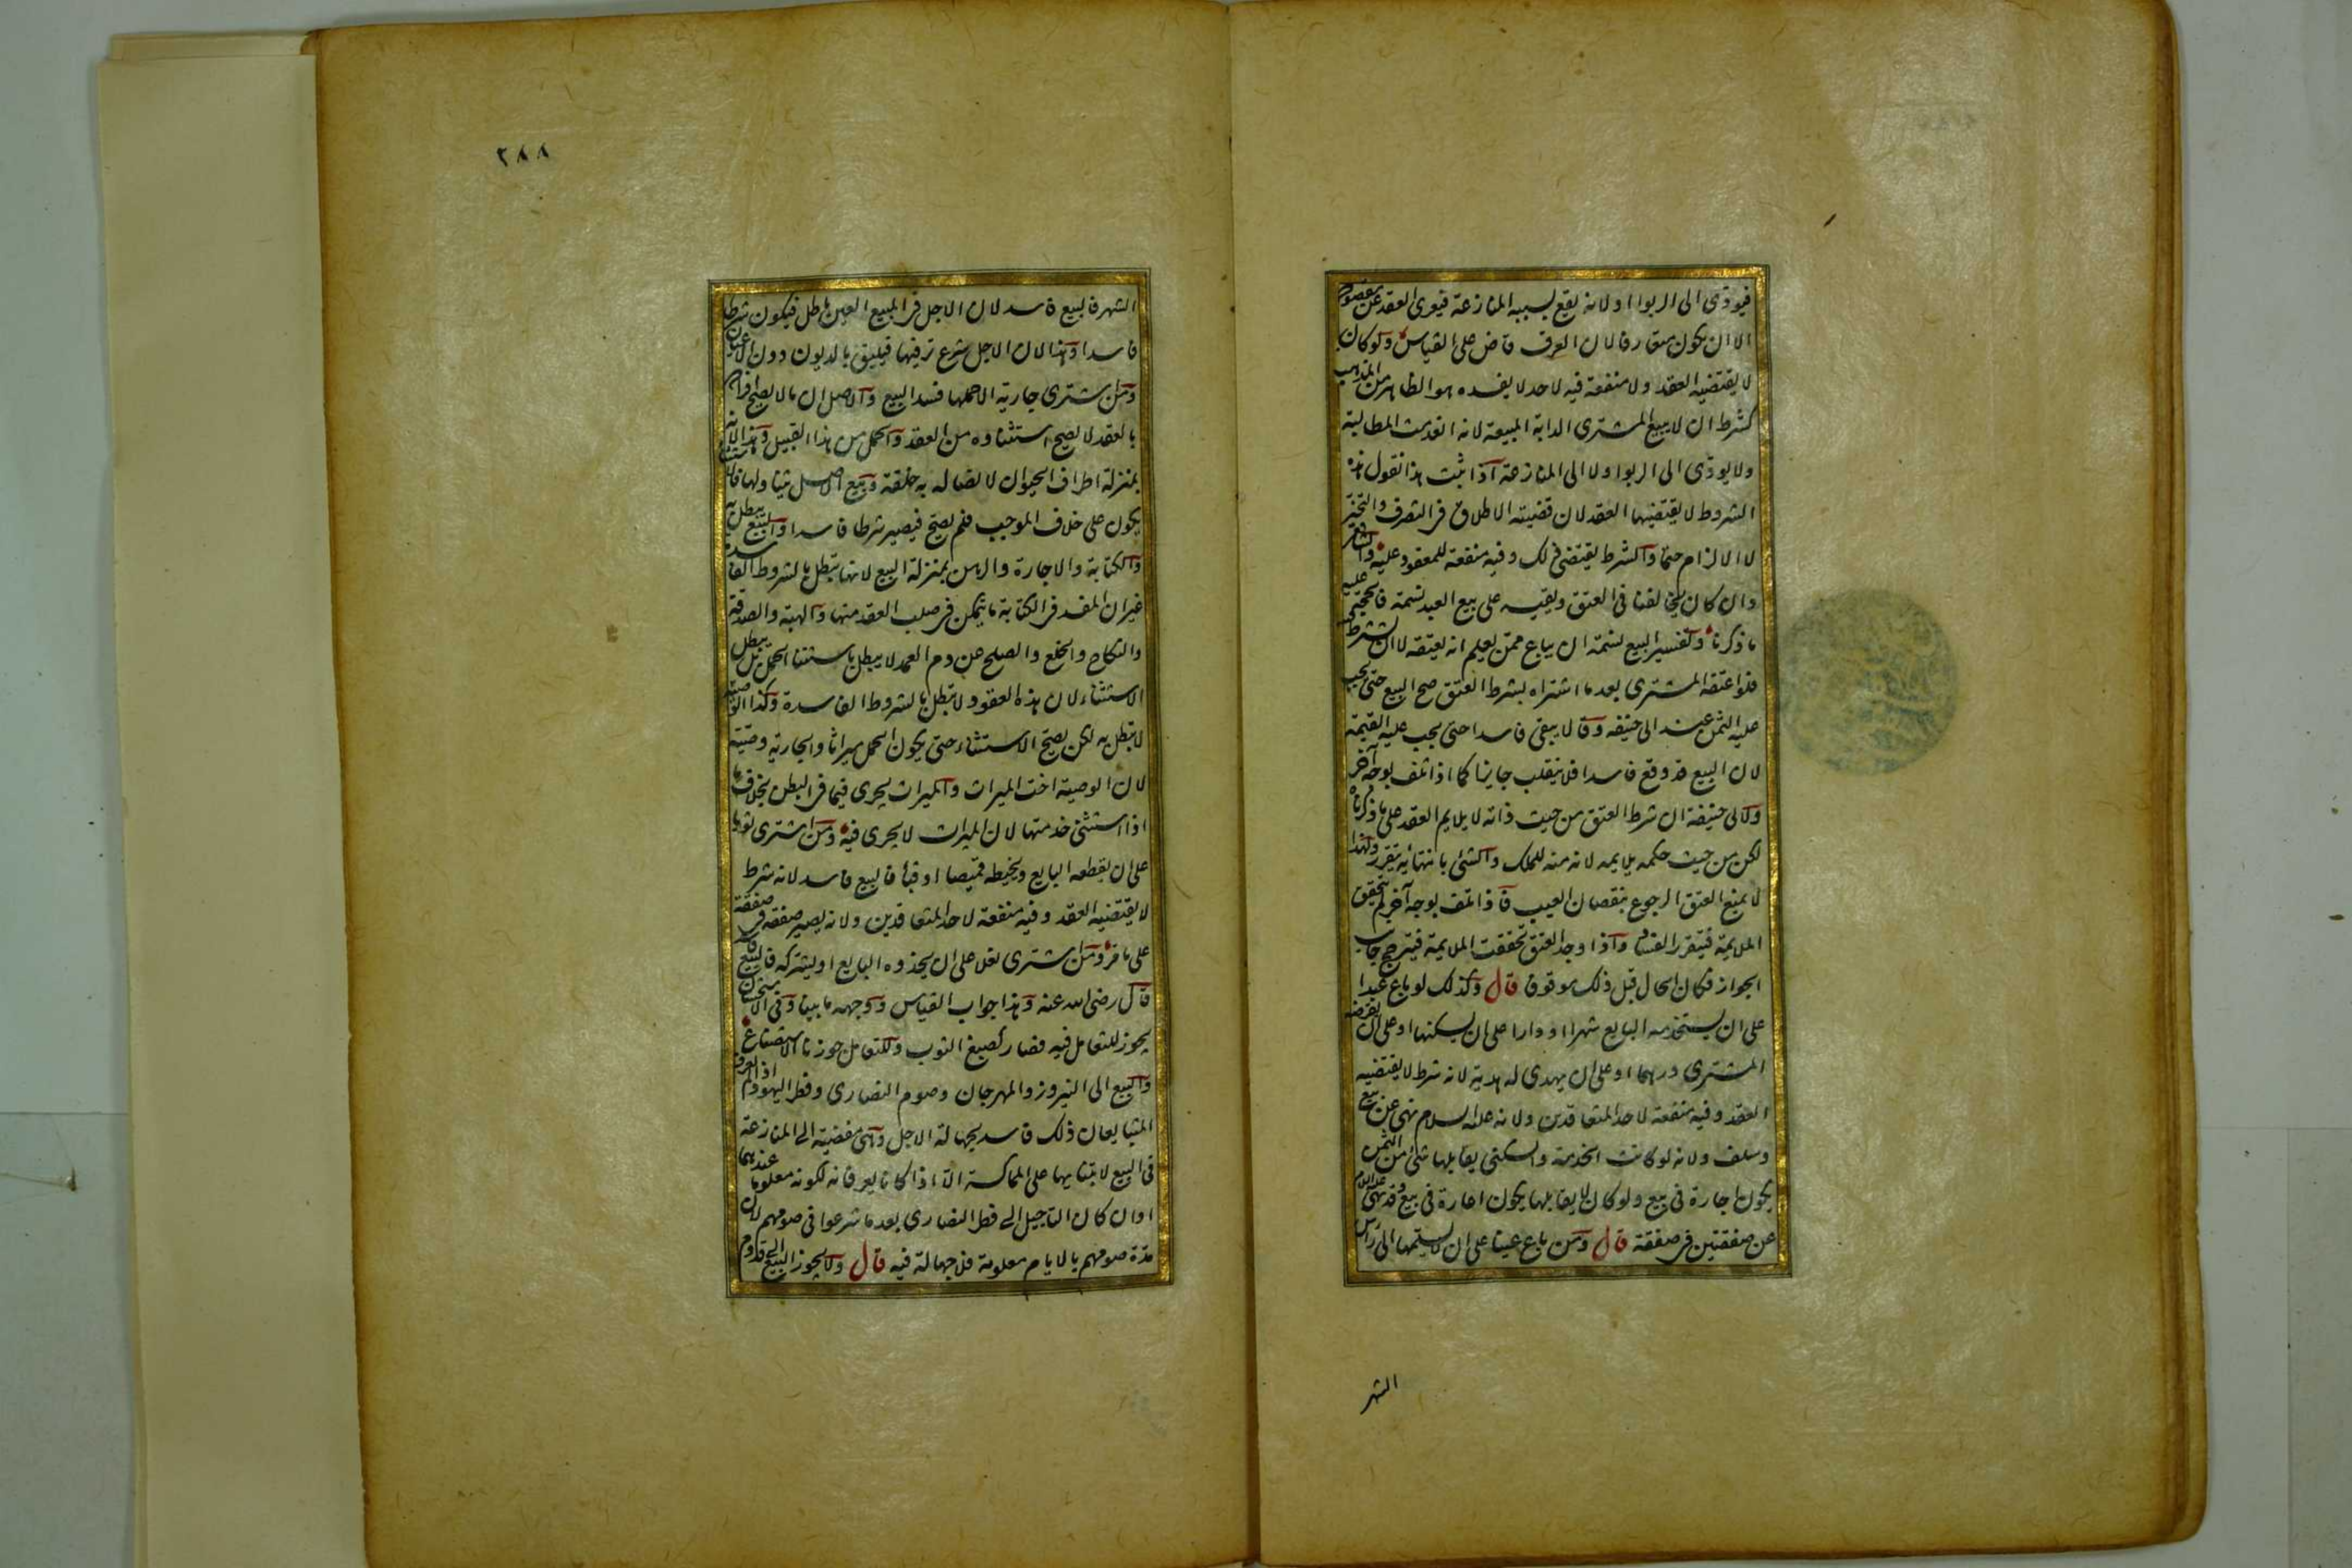 فيؤدى الى الربوا او لانه يقع بسببه المنازعة فيعرى العقد عن مقصوده
الا ان يكون متعارفا لان العرف قاض على القياس ولو كان
لا يقتضيه العقد ولا منفعة فيه لاحد لا يفسده هو الظاهر من المذهب
كشرط ان لا يبيع المشترى الدابة المبيعة لانه انعدمت المطالبة
ولا يؤدى الى الربوا ولا الى المنازعة اذا ثبت هذا نقول هذه
الشروط لا يقتضيها العقد لان قضيته الاطلاق فى التصرف والتخيير
لا الالزام حتما والشرط يقتضى ذلك وفيه منفعة للمعقود عليه والشافعى
وان كان يخالفنا فى العتق ويقيسه على بيع العبد نسمة فالحجة عليه
ما ذكرنا وتفسير البيع نسمة ان يباع ممن يعلم انه يعتقه لا ان يشترط
فلو اعتقه المشترى بعد ما اشتراه بشرط العتق صح البيع حتى يجب
عليه الثمن عند ابى حنيفه وقالا يبقى فاسدا حتى يجب عليه القيمة
لان البيع قد وقع فاسدا فلا ينقلب جايزا كما اذا تلف بوجه آخر
ولابى حنيفة ان شرط العتق من حيث ذاته لا يلايم العقد على ما ذكرناه
لكن من حيث حكمه يلايمه لانه منه للملك والشئ بانتهائه يتقرر ولهذا
لا يمنع العتق الرجوع بنقصان العيب فاذا تلف بوجه آخر لم يتحقق
الملايمة فيتقرر الفساد واذا وجد العتق تحققت الملايمة فيترجح جانب
الجواز فكان الحال قبل ذلك موقوفا قال وكذلك لو باع عبدا
على ان يستخدمه البايع شهرا او دارا على ان يسكنها او على ان يقرضه
المشترى درهما او على ان يهدى له هدية لانه شرط لا يقتضيه
العقد وفيه منفعة لاحد المتعاقدين ولانه عليه السلام نهى عن بيع
وسلف ولانه لو كانت الخدمة والسكنى يقابلها شئ من الثمن
يكون اجارة فى بيع ولو كان لا يقابلها يكون اعارة فى بيع وقد نهى عليه السلام
عن صفقتين فى صفقة قال ومن باع عينا على ان لا يسلمها الى راس
الشهر
٢٨٨
الشهر فالبيع فاسد لان الاجل فى المبيع العين باطل فيكون شرطا
فاسدا وهذا لان الاجل شرع ترفيها فيليق بالديون دون الاعيان
ومن اشترى جارية الا حملها فسد البيع والاصل ان ما لا يصح افراده
بالعقد لا يصح استثناوه من العقد والحمل من هذا القبيل وهذا لانه
بمنزلة اطراف الحيوان لاتصاله به خلقة وبيع الاصل يتناولها فالاستثناء
يكون على خلاف الموجب فلم يصح فيصير شرطا فاسدا والبيع يبطل به
والكتابة والاجارة والرهن بمنزلة البيع لانها تبطل بالشروط الفاسدة
غير ان المفسد فى الكتابة ما يتمكن فى صلب العقد منها والهبة والصدقة
والنكاح والخلع والصلح عن دم العمد لا يبطل باستثناء الحمل بل يبطل
الاستثناء لان هذه العقود لا تبطل بالشروط الفاسدة وكذا الوصية
لا تبطل به لكن يصح الاستثناء حتى يكون الحمل ميراثا والجارية وصية
لان الوصية اخت الميراث والميراث يجرى فيما فى البطن بخلاف ما
اذا استثنى خدمتها لان الميراث لا يجرى فيه ومن اشترى ثوبا
على ان يقطعه البايع ويخيطه قميصا او قباء فالبيع فاسد لانه شرط
لا يقتضيه العقد وفيه منفعة لاحد المتعاقدين ولانه يصير صفقة فى صفقة
على ما مر ومن اشترى نعلا على ان يحذوه البايع او يشركه فالبيع فاسد
قال رضى الله عنه وهذا جواب القياس ووجهه ما بينا وفى الاستحسان
يجوز للتعامل فيه فصار كصبغ الثوب وللتعامل جوزنا الاستصناع
والبيع الى النيروز والمهرجان وصوم النصارى وفطر اليهود اذا لم يعرف
المتبايعان ذلك فاسد لجهالة الاجل وهى مفضية الى المنازعة
فى البيع لابتنايها على المماكسة الا اذا كانا يعرفانه لكونه معلوما عندهما
او ان كان التاجيل الى فطر النصارى بعد ما شرعوا فى صومهم لان
مدة صومهم بالايام معلومة فلا جهالة فيه قال ولا يجوز البيع الى قدوم